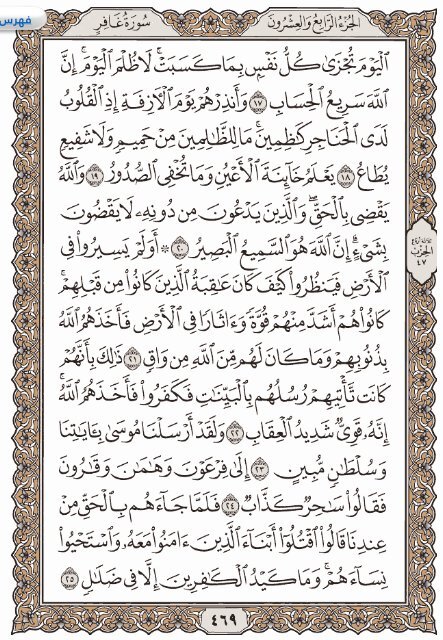 فهرس
الجزء الرابع والعشرون
سورة غافر
الْيَوْمَ تُجْزَىٰ كُلُّ نَفْسٍۭ بِمَا كَسَبَتْ ۚ لَا ظُلْمَ الْيَوْمَ ۚ إِنَّ
اللَّهَ سَرِيعُ الْحِسَابِ ١٧ وَأَنذِرْهُمْ يَوْمَ الْآزِفَةِ إِذِ الْقُلُوبُ
لَدَى الْحَنَاجِرِ كَاظِمِينَ ۚ مَا لِلظَّالِمِينَ مِنْ حَمِيمٍ وَلَا شَفِيعٍ
يُطَاعُ ١٨ يَعْلَمُ خَائِنَةَ الْأَعْيُنِ وَمَا تُخْفِي الصُّدُورُ ١٩ وَاللَّهُ
يَقْضِي بِالْحَقِّ ۖ وَالَّذِينَ يَدْعُونَ مِن دُونِهِ لَا يَقْضُونَ
بِشَيْءٍ ۗ إِنَّ اللَّهَ هُوَ السَّمِيعُ الْبَصِيرُ ٢٠ ۞ أَوَلَمْ يَسِيرُوا فِي
الْأَرْضِ فَيَنظُرُوا كَيْفَ كَانَ عَاقِبَةُ الَّذِينَ كَانُوا مِن قَبْلِهِمْ ۚ
كَانُوا هُمْ أَشَدَّ مِنْهُمْ قُوَّةً وَءَاثَارًا فِي الْأَرْضِ فَأَخَذَهُمُ اللَّهُ
بِذُنُوبِهِمْ وَمَا كَانَ لَهُم مِّنَ اللَّهِ مِن وَاقٍ ٢١ ذَٰلِكَ بِأَنَّهُمْ
كَانَت تَّأْتِيهِمْ رُسُلُهُم بِالْبَيِّنَاتِ فَكَفَرُوا فَأَخَذَهُمُ اللَّهُ ۚ
إِنَّهُ قَوِيٌّ شَدِيدُ الْعِقَابِ ٢٢ وَلَقَدْ أَرْسَلْنَا مُوسَىٰ بِـَٔايَاتِنَا
وَسُلْطَانٍ مُّبِينٍ ٢٣ إِلَىٰ فِرْعَوْنَ وَهَامَانَ وَقَارُونَ
فَقَالُوا سَاحِرٌ كَذَّابٌ ٢٤ فَلَمَّا جَاءَهُم بِالْحَقِّ مِنْ
عِندِنَا قَالُوا اقْتُلُوا أَبْنَاءَ الَّذِينَ ءَامَنُوا مَعَهُ وَاسْتَحْيُوا
نِسَاءَهُمْ ۚ وَمَا كَيْدُ الْكَافِرِينَ إِلَّا فِي ضَلَالٍ ٢٥
الحزب
٤٧
٤٦٩